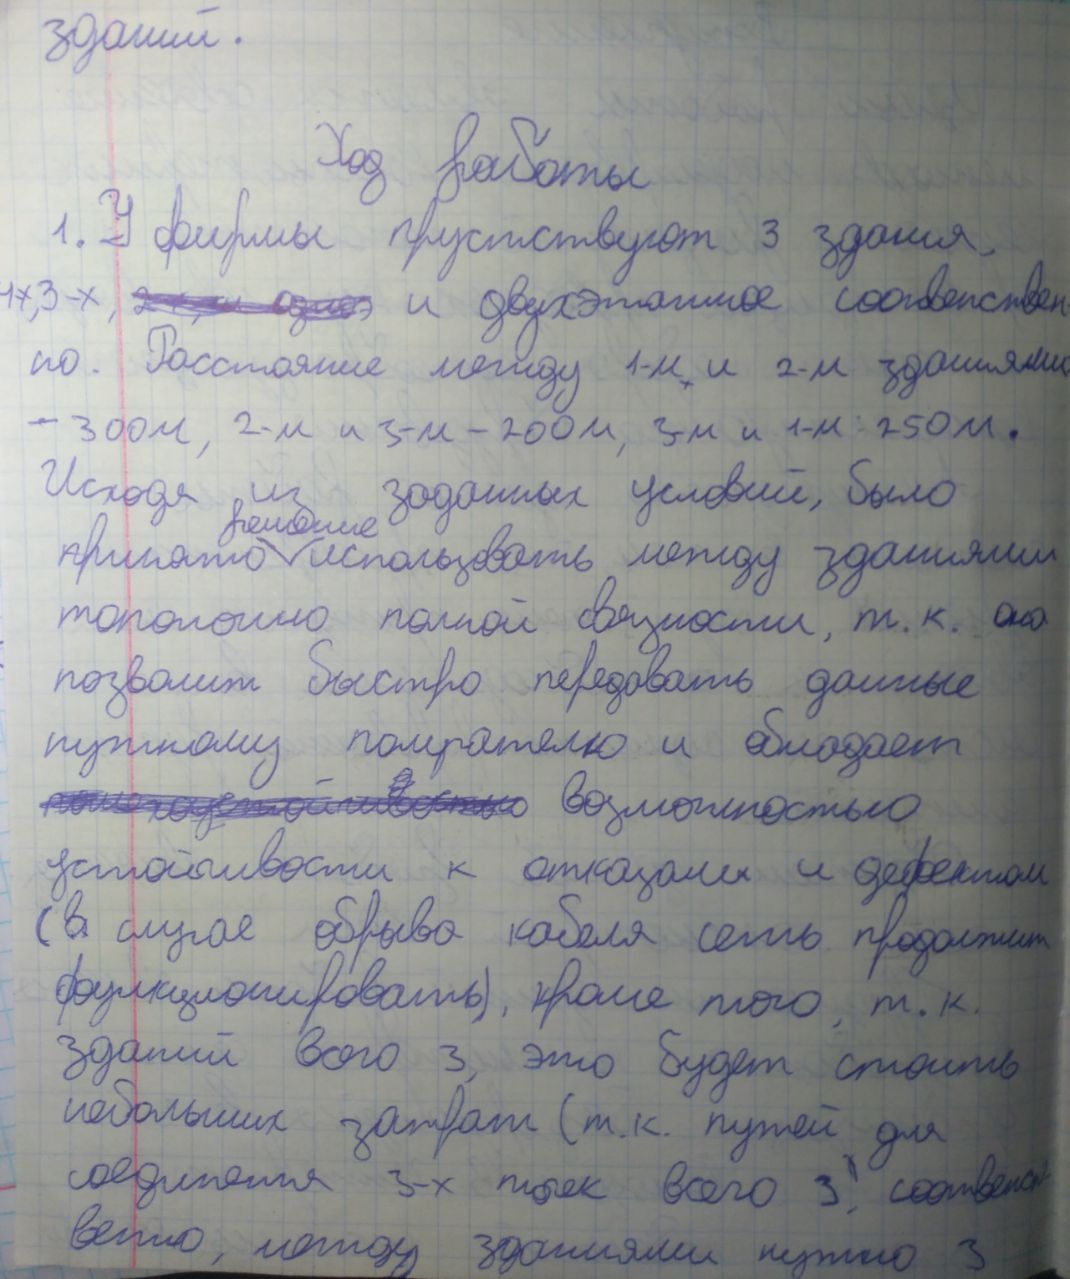 зданий.
Ход работы
1. У фирмы прустствуют 3 здания,
4х,3-х, и двухэтажное соответствен
но. Расстояние между 1-м и 2-м зданиями
- 300м, 2-м и 3-м - 200м, 3-м и 1-м 250м.
Исходя из заданных условий, было
решение
принято использовать между зданиями
топологию полной связности, т.к. она
позволит быстро передавать данные
нужному получателю и обладает
возможностью
устойчивости к отказам и дефектам
(в случае обрыва кабеля сеть продолжит
функционировать), кроме того, т.к.
зданий всего 3, это будет стоить
небольших затрат (т.к. путей для
соединения 3-х точек всего 3, соответст
венно, между зданиями нужно 3